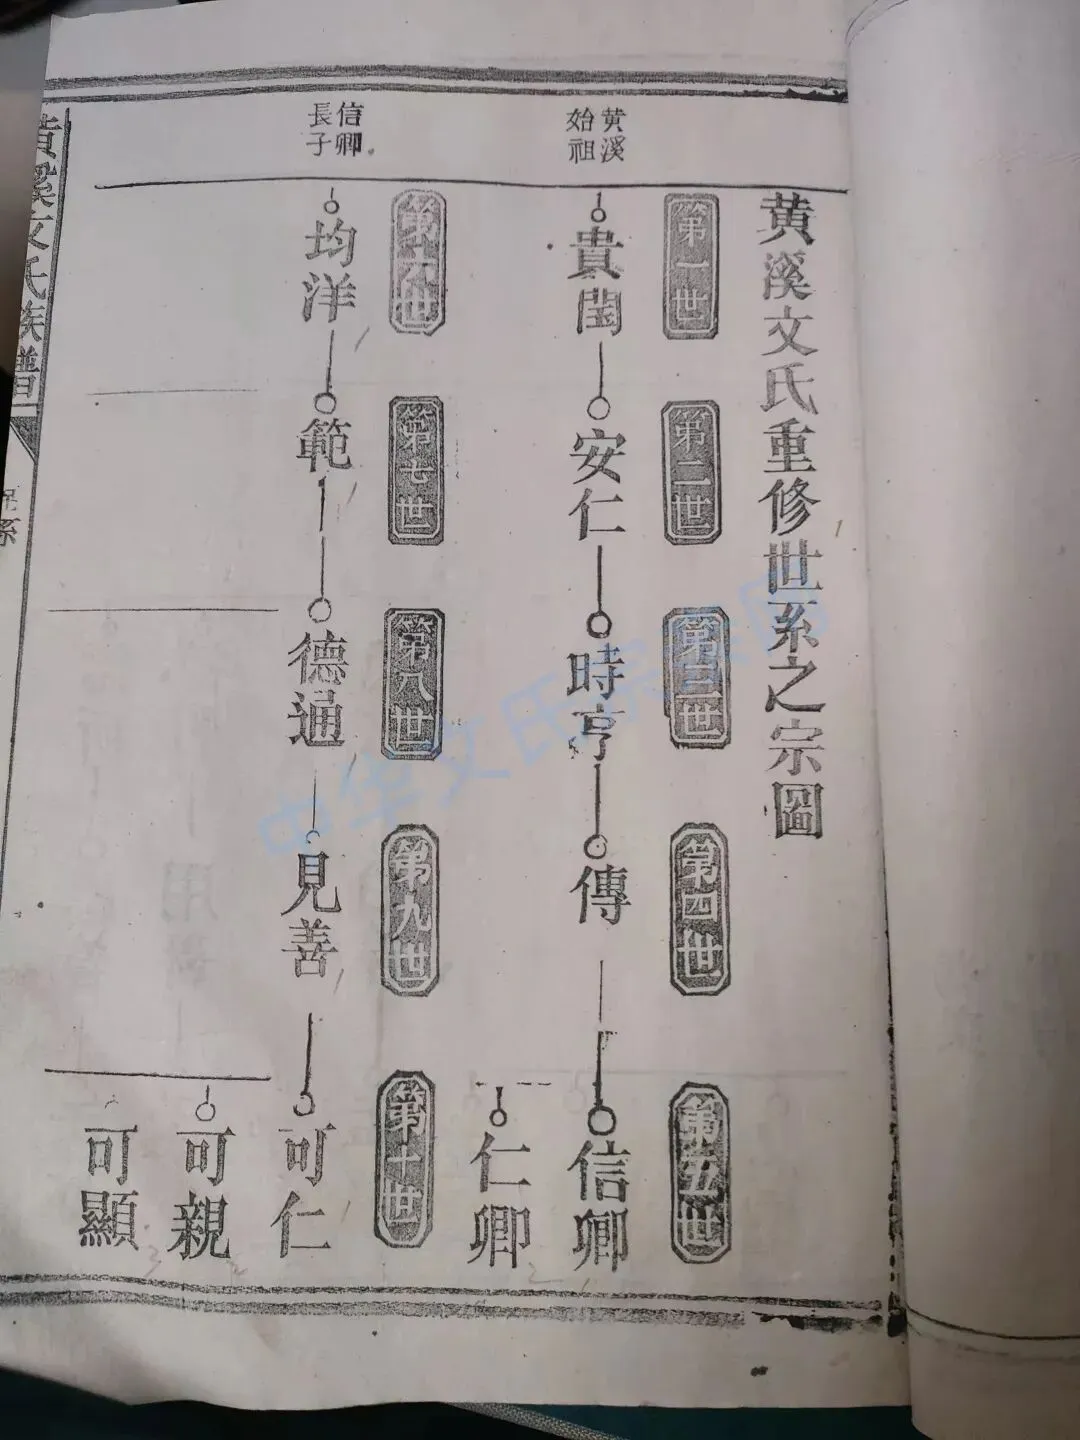 黄溪文氏重修世系之宗圖
黄溪
始祖
第一世
第二世
第三世
第四世
第五世
貴閏
安仁
時亨
傳
信卿
仁卿
信卿
長子
第六世
第七世
第八世
第九世
第十世
均洋
範
德通
見善
可仁
可親
可顯
黄溪文氏族譜
系
中华文氏宗亲网